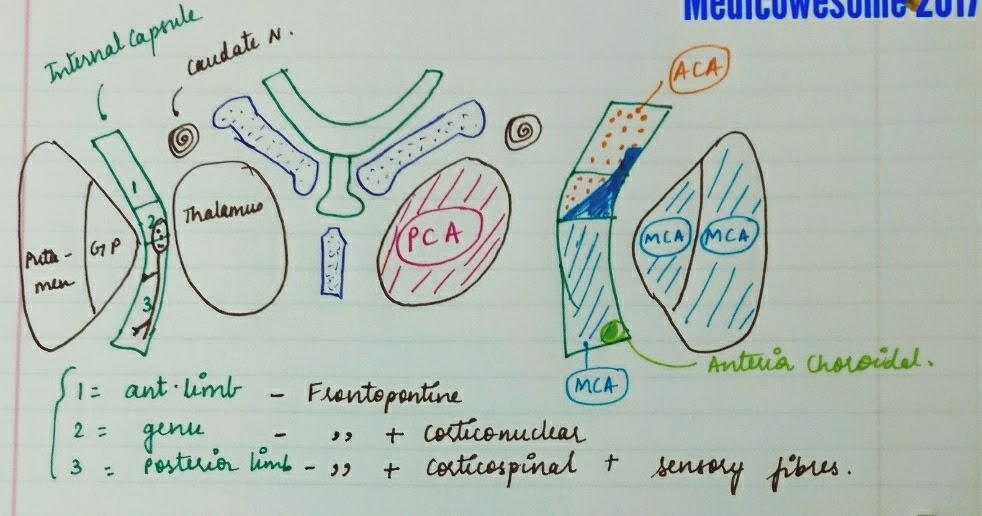 Medicowesome 2017
Internal Capsule
Caudate N.
ACA
1
2
3
Puta-
men
GP
Thalamus
PCA
MCA
MCA
MCA
Anterior Choroidal.
1 = ant. limb - Frontopontine
2 = genu - ,, + corticonuclear
3 = Posterior limb - ,, + corticospinal + sensory fibres.